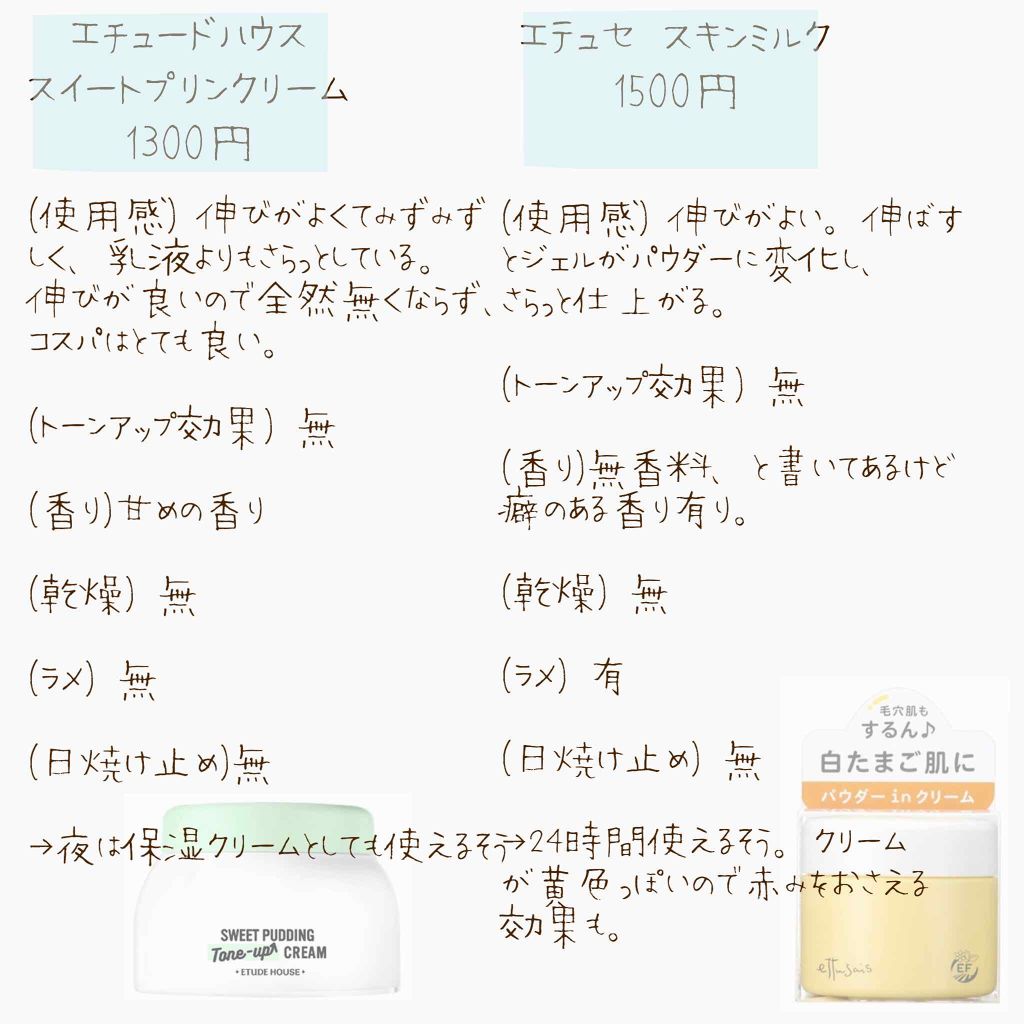 エチュードハウス
スイートプリンクリーム
1300円
(使用感) 伸びがよくてみずみず
しく、乳液よりもさらっとしている。
伸びが良いので全然無くならず、
コスパはとても良い。
(トーンアップ効果) 無
(香り)甘めの香り
(乾燥) 無
(ラメ) 無
(日焼け止め)無
→夜は保湿クリームとしても使えるそう
SWEET PUDDING
Tone-up CREAM
• ETUDE HOUSE •
エテュセ スキンミルク
1500円
(使用感) 伸びがよい。伸ばす
とジェルがパウダーに変化し、
さらっと仕上がる。
(トーンアップ効果) 無
(香り)無香料、と書いてあるけど
癖のある香り有り。
(乾燥) 無
(ラメ) 有
(日焼け止め) 無
→24時間使えるそう。 クリーム
が黄色っぽいので赤みをおさえる
効果も。
毛穴肌も
するん♪
白たまご肌に
パウダー in クリーム
ettusais
EF